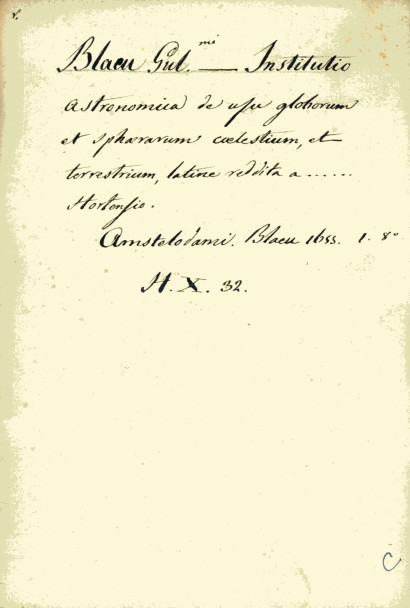 Blaeu Gul.mi — Institutio
astronomica de usu globorum
et sphaerarum coelestium, et
terrestrium, latine reddita a ......
Hortensio.
Amstelodami. Blaeu 1655. 1. 8°
H. X. 32.
C